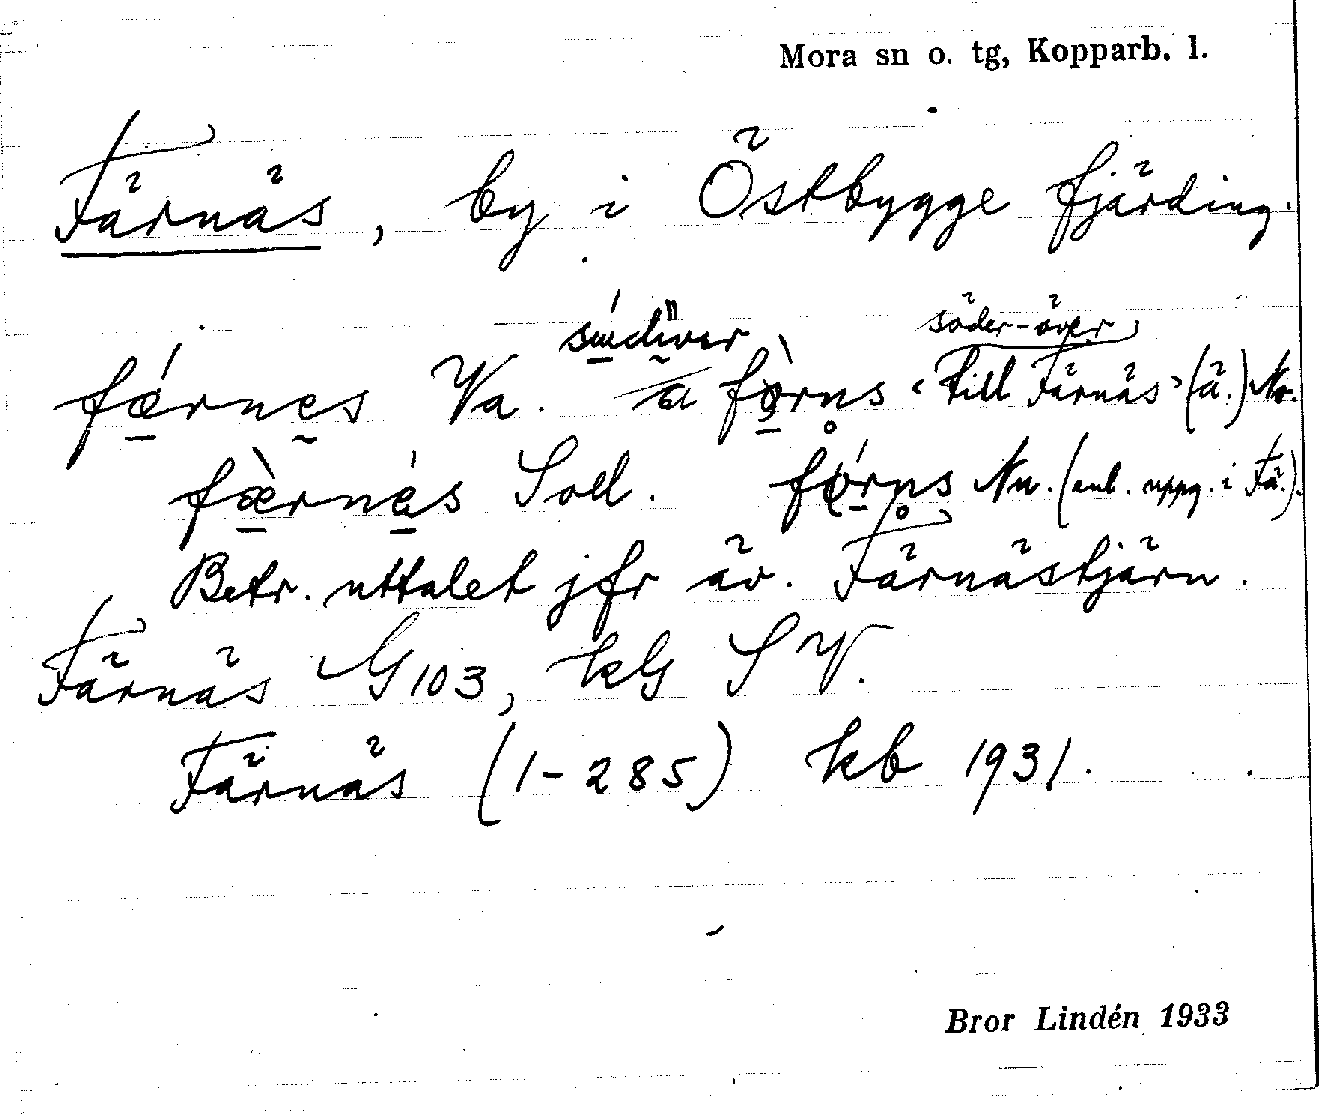 Mora sn o. tg, Kopparb. l.
Färnäs, by i Östbygge fjärding.
söder-över
færnes Va. a førns "till Färnäs" (ä.) No.
færnæs Soll. førns Nu. (enl. uppg. i Fä.).
Betr. uttalet jfr äv. Färnästjärn.
Färnäs G 103, kG SV.
Färnäs (1-285) kb 1931.
Bror Lindén 1933